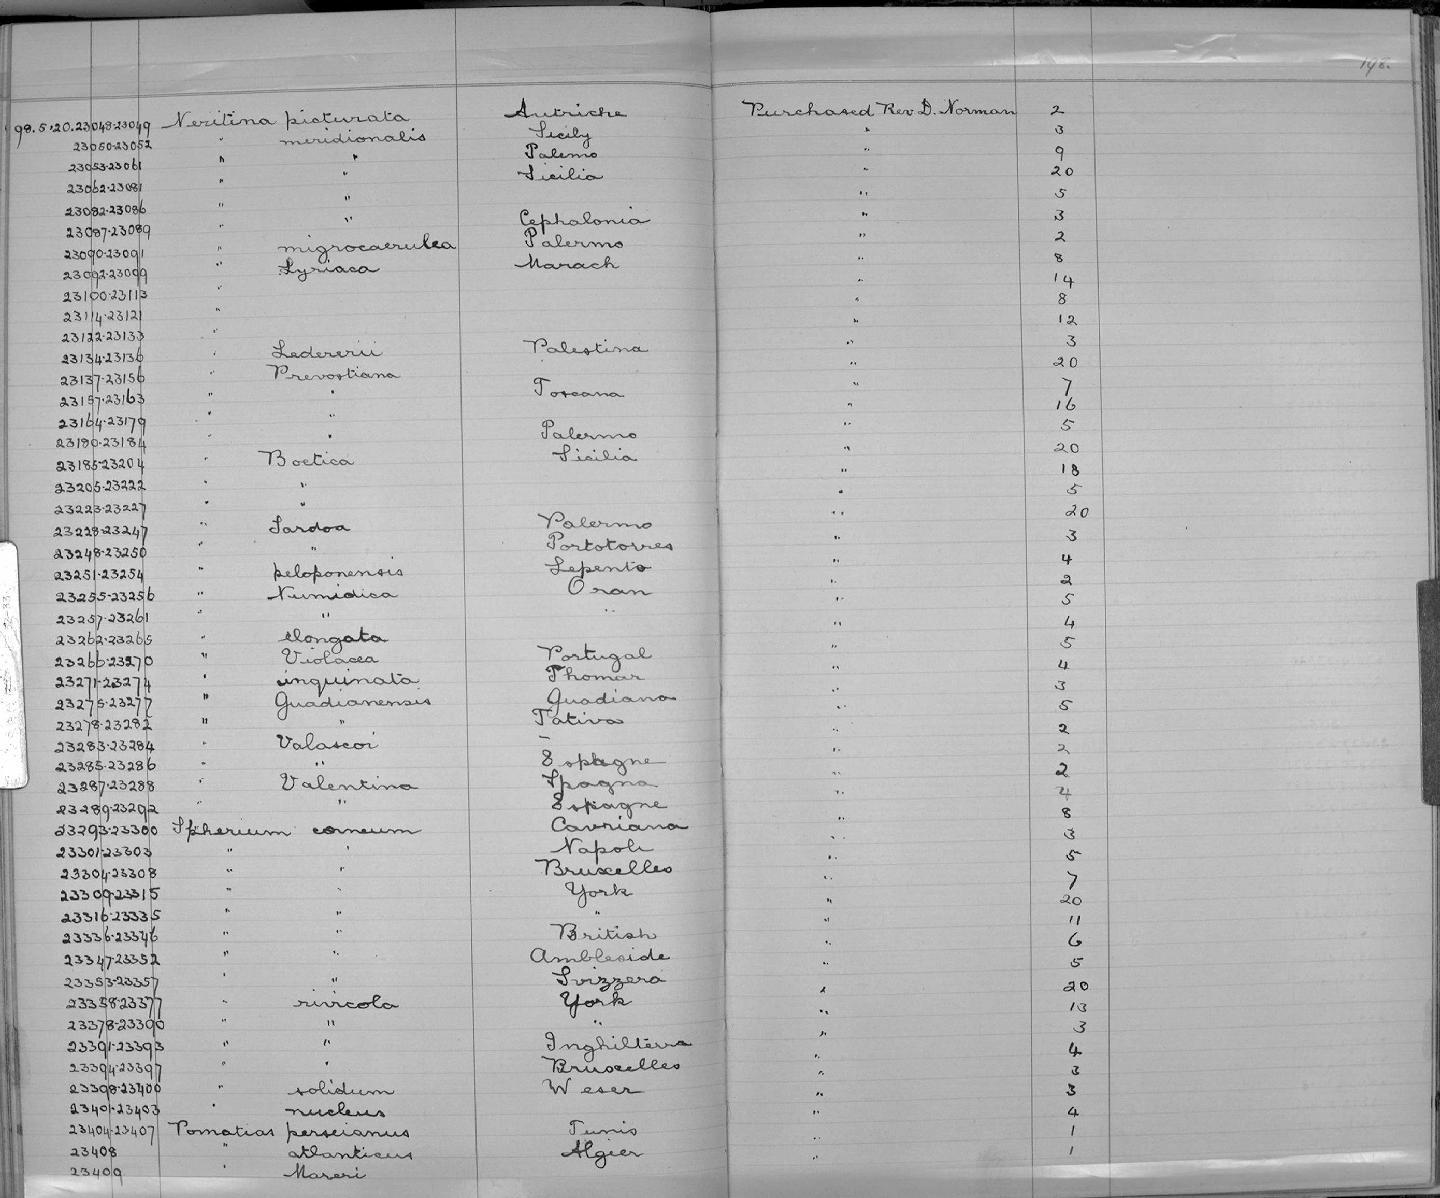 198.
98.5.20.23048-23049 Neritina picturata Autriche Purchased Rev. D. Norman 2
23050-23052 " meridionalis Sicily " 3
23053-23061 " " Palermo " 9
23062-23081 " " Sicilia " 20
23082-23086 " " " 5
23087-23089 " " Cephalonia " 3
23090-23091 " migrocaerulea Palermo " 2
23092-23099 " Syriaca Marach " 8
23100-23113 " " 14
23114-23121 " " 8
23122-23133 " " 12
23134-23136 " Ledererii Palestina " 3
23137-23156 " Prevostiana " 20
23157-23163 " " Toscana " 7
23164-23179 " " " 16
23180-23184 " " Palermo " 5
23185-23204 " Boetica Sicilia " 20
23205-23222 " " " 18
23223-23227 " " " 5
23228-23247 " Sardoa Palermo " 20
23248-23250 " " Portotorres " 3
23251-23254 " peloponensis Lepento " 4
23255-23256 " Numidica Oran " 2
23257-23261 " " " " 5
23262-23265 " elongata " 4
23266-23270 " Violacea Portugal " 5
23271-23274 " inquinata Thomar " 4
23275-23277 " Guadianensis Guadiana " 3
23278-23282 " " Tativa " 5
23283-23284 " Valascoi – " 2
23285-23286 " " Espagne " 2
23287-23288 " Valentina Spagna " 2
23289-23292 " " Espagne " 4
23293-23300 Spherium corneum Cavriana " 8
23301-23303 " " Napoli " 3
23304-23308 " " Bruxelles " 5
23309-23315 " " York " 7
23316-23335 " " " " 20
23336-23346 " " British " 11
23347-23352 " " Ambleside " 6
23353-23357 " " Svizzera " 5
23358-23377 " rivicola York " 20
23378-23390 " " " " 13
23391-23393 " " Inghilterra " 3
23394-23397 " " Bruxelles " 4
23398-23400 " solidum Weser " 3
23401-23403 " nucleus " 3
23404-23407 Pomatias perseianus Tunis " 4
23408 " atlanticus Algier " 1
23409 " Mareri " 1